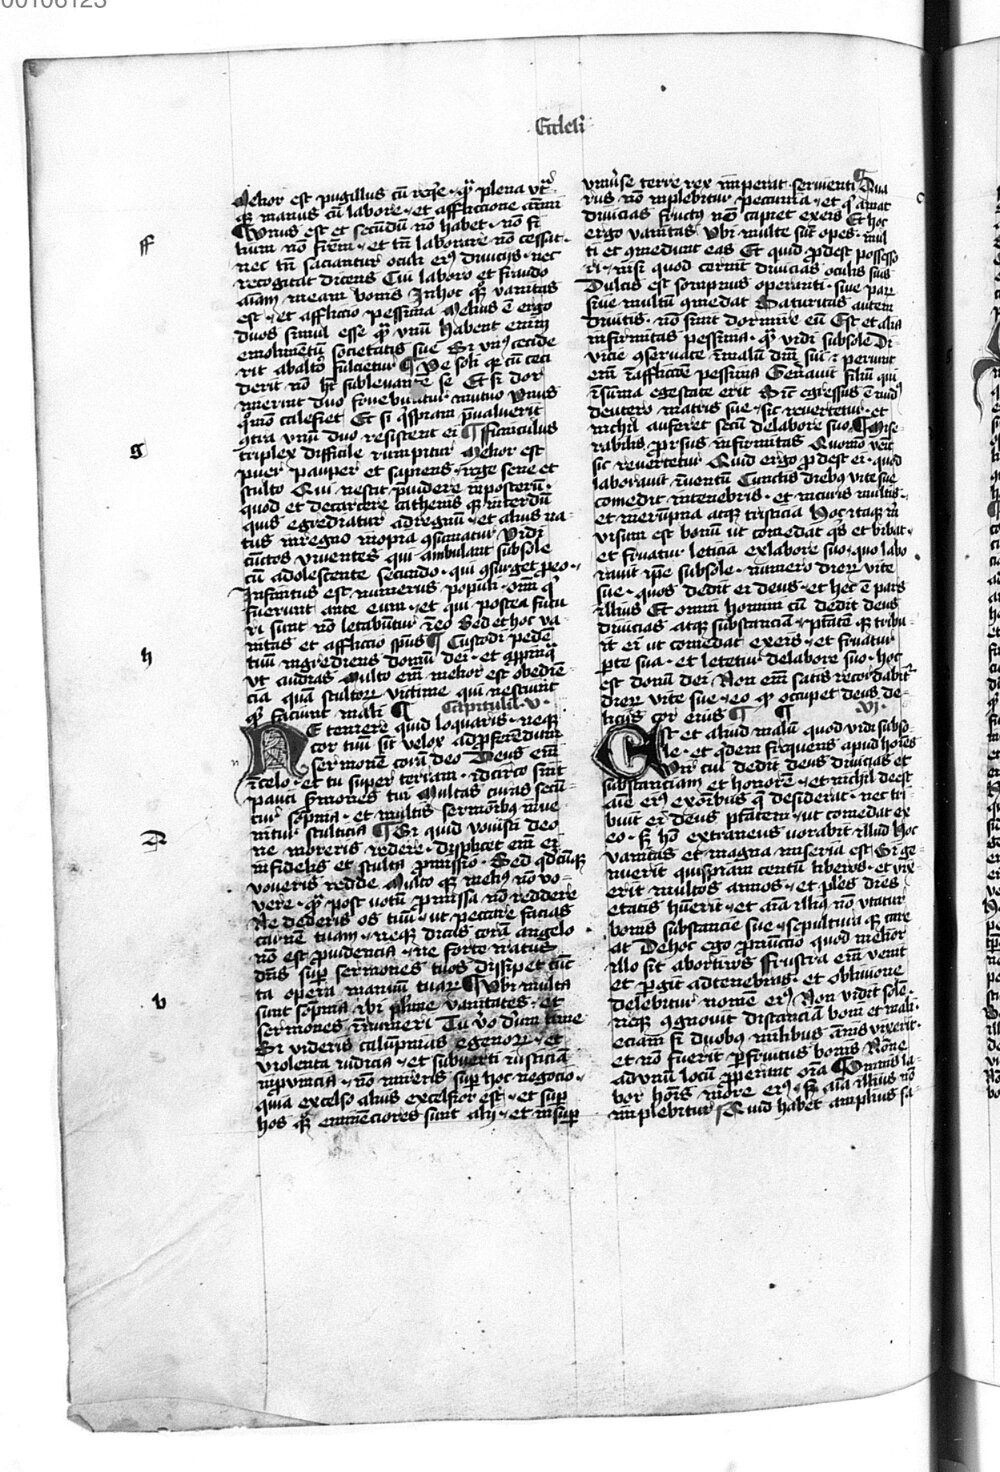 00106123
Eccles
Melior est pugillus cū reqͥe · qͣ plena vtͣ
qꝫ manus cū labore · et afflictione animi
¶ Vnus est et secūdū nō habet · nō fi
lium nō frēm · et tn̄ laborare nō cessat ·
nec tn̄ saciantur oculi eiꝰ diuicijs · nec
recogitat dicens Cui laboro et fraudo
aīam meam bonis Inhoc qꝫ vanitas
est · et afflictio pessima Melius ē ergo
duos simul esse qͣ vnū habent enim
emolimētū societatis sue Si vnꝰ cecide
rit abalto fulcietur ¶ Ve soli qꝫ cū ceci
derit nō hꝫ subleuantē se Et si dor
mierint duo fouebūtur mutuo vnus
qͦmo calefiet Et si qͥspiam p̄ualuerit
ꝯtra vnū duo resistent ei ¶ fūniculus
triplex difficile rumpitur Melior est
puer pauper et sapiens · rege sene et
stulto Qui nescit p̄uidere inposterū ·
quod et decarcere cathenis qꝫ interdū
quis egrediatur adregnū · et alius na
tus inregno inopia ꝯsumatur Vidi
cūctos viuentes qui ambulant subsole
cū adolescente secundo · qui ꝯsurget ꝓeo ·
Infinitus est numerus populi · om̄i qͥ
fuerunt ante eum · et qui postea futu
ri sunt nō letabūtur ī eo Sed et hoc va
nitas et afflictio sp̄us ¶ Custodi pedē
tuū ingrediens domū dei · et appinq̄
vt audias Multo em̄ melior est obediē
cia quā stultorꝝ victime qui nesciunt
qͥd faciunt mali ¶ Capitulū · v ·
NE temere quid loquaris · neqꝫ
cor tuū sit velox adꝓferēdum
sermonē corā deo Deus em̄
ī celo · et tu super terram · idcirco sint
pauci sermones tui Multas curas secū
tur sōpnia · et multis sermōibꝰ inue
nitur stulticia ¶ Si quid vouisti deo
ne moreris reddere · displicet em̄ ei
infidelis et stulta ꝓmissio · Sed qdcūqꝫ
voueris redde Multo qꝫ meliꝰ nō vo
vere · qͣ post uotū ꝓmissa nō reddere
Ne dederis os tuū · ut peccare facias
carnē tuam · neqꝫ dicas corā angelo
nō est ꝓuidencia · ne forte iratus
dn̄s suꝑ sermones tuos dissipet cūc
ta opera manuū tuarꝝ ¶ Vbi multa
sunt sōpnia ibi plime vanitates · et
sermones īnumeri Tu ṽo deum time
Si videris calūpnias egenorꝝ · et
violenta iudicia · et subuerti iusticiā
inꝓuincia · nō mireris suꝑ hoc negocio ·
quia excelso alius excelsior est · et suꝑ
hos qꝫ eminēciores sunt alij · et insuꝑ
vniuīse terre rex imperat seruienti ¶ Aua
rus nō inplebitur pecunia · et qͥ amat
diuicias fructꝰ nō capiet exeis Et hoc
ergo vanitas Vbi multe sūt opes · mul
ti et ꝯmedunt eas Et quid ꝓdest possesso
ri · nisi quod cernit diuicias oculis suis
Dulcis est sompnus operanti · siue paꝝ
siue multū ꝯmedat Saturitas autem
diuitis · nō sinit dormire eū Est et alia
infirmitas pessima · qͣ vidi subsole Di
vicie ꝯseruate ī malū dn̄i sui · pereunt
em̄ ī afflictiōe pessima Generauit filiū qui
īsumma egestate erit Sic̄ egressus ē nudꝰ
deutero matris sue · sic reuertetur · et
nichil auferet secū delabore suo ¶ Mise
rabilis ꝓrsus infirmitas Quomō venit
sic reuertetur Quid ergo ꝓdest ei · quod
laborauit īuentū Cunctis diebꝰ vite sue
comedit intenebris · et incuris multis ·
et inerūpna atqꝫ tristicia Hoc itaqꝫ m̄
visum est bonū ut comedat qͥs et bibat ·
et fruatur leticia exlabore suo · quo labo
rauit ip̄e subsole · numero dierꝝ vite
sue · quos dedit ei deus · et hec ē pars
illius Et omni homini cū dedit deus
diuicias atqꝫ substanciā · ptātē qꝫ tribu
it ei ut comedat exeis · et fruatur
ꝑte sua · et letetur delabore suo · hoc
est donū dei Non em̄ satis recordabitͣ
dierꝝ vite sue · eo qͥ occupet deus de
licijs cor eius ¶ ¶ · vi ·
Est et aliud malū quod vidi subso
le · et qͥdem frequens apud hoīes
Vir cui dedit deus diuicias et
substanciam et honorē · et nichil deest
aīe eiꝰ exōibus q̄ desiderat · nec tri
buit ei deus ptātem · ut comedat ex
eo · sꝫ hō extraneus vorabit illud Hoc
vanitas et magna miseria est Si ge
nuerit quispiam centū liberos · et vix
erit multos annos · et ples dies
etatis hūerit · et aīa illiꝰ nō vtatur
bonis substancie sue · sepultura qꝫ care
at Dehoc ego ꝓnūccio quod melior
illo sit abortiuus Frustra em̄ venit
et ꝑgit adtenebras · et obliuione
delebitur nomē eiꝰ Non vidit sole
neqꝫ ꝯgnouit distanciā boni et mali ·
eciam si duobꝰ milibus ānis vixerit ·
et nō fuerit ꝑfruitus bonis Nōne
advnū locū ꝓperant oīa ¶ Omnis la
bor hoīs in ore eiꝰ · sꝫ aīa illius nō
inplebitur Quid habet amplius sa
ff
g
h
A
b